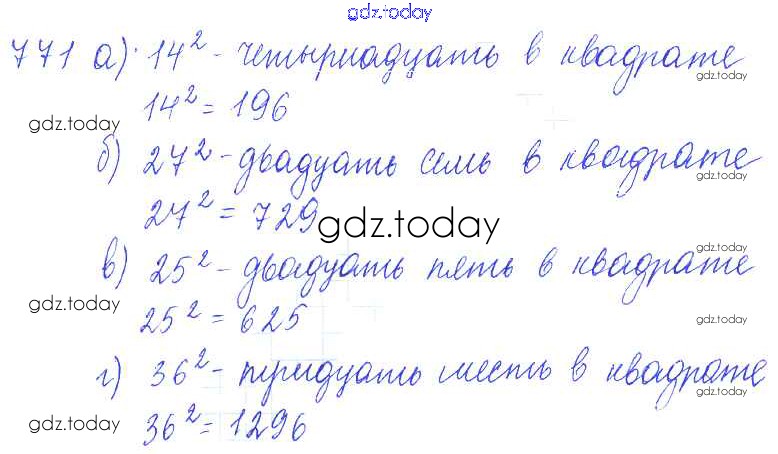 gdz.today
771 а) 14² - четырнадцать в квадрате
gdz.today
14² = 196
gdz.today
б) 27² - двадцать семь в квадрате
gdz.today
27² = 729
gdz.today
gdz.today
в) 25² - двадцать пять в квадрате
gdz.today
25² = 625
gdz.today
г) 36² - тридцать шесть в квадрате
gdz.today
36² = 1296
gdz.today
gdz.today